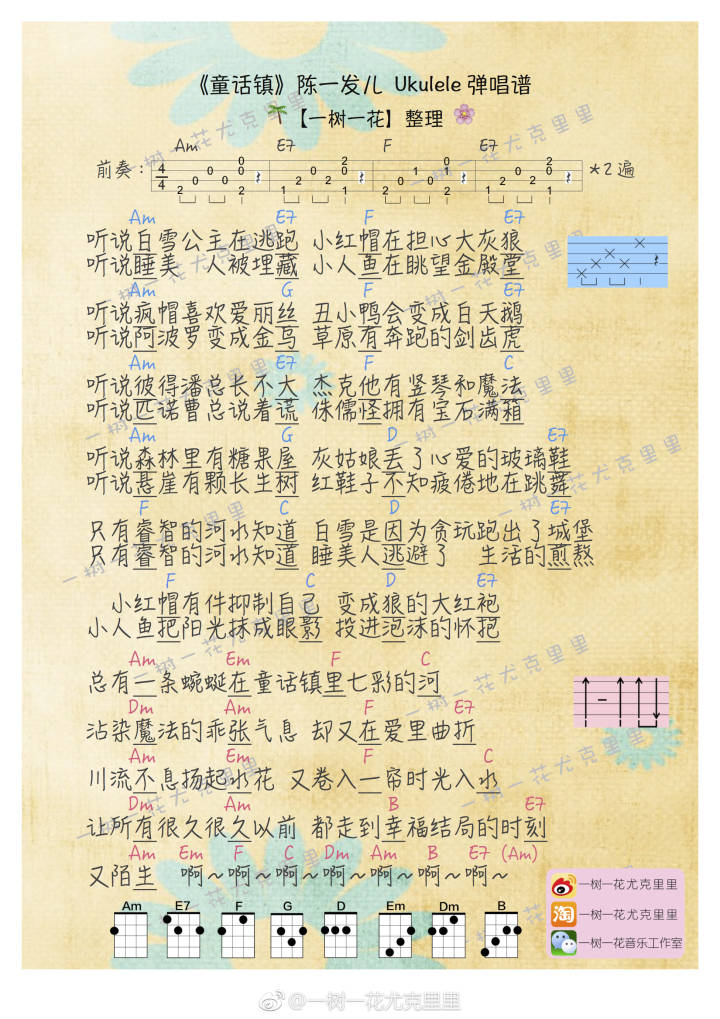 《童话镇》陈一发儿 Ukulele 弹唱谱
【一树一花】整理
Am E7 F E7
前奏: 4/4 2 0 0 0 0 2 1 2 0 2 0 1 2 0 1 0 0 1 1 2 0 2 0 2 *2遍
Am E7 F E7
听说白雪公主在逃跑 小红帽在担心大灰狼
听说睡美 人被埋藏 小人鱼在眺望金殿堂
Am G F E7
听说疯帽喜欢爱丽丝 丑小鸭会变成白天鹅
听说阿波罗变成金乌 草原有奔跑的剑齿虎
Am E7 F C
听说彼得潘总长不大 杰克他有竖琴和魔法
听说匹诺曹总说着谎 侏儒怪拥有宝石满箱
Am G D E7
听说森林里有糖果屋 灰姑娘丢了心爱的玻璃鞋
听说悬崖有颗长生树 红鞋子不知疲倦地在跳舞
F C D E7
只有睿智的河水知道 白雪是因为贪玩跑出了城堡
只有睿智的河水知道 睡美人逃避了 生活的煎熬
F C D E7
小红帽有件抑制自己 变成狼的大红袍
小人鱼把阳光抹成眼影 投进泡沫的怀抱
Am Em F C
总有一条蜿蜒在童话镇里七彩的河
Dm Am F E7
沾染魔法的乖张气息 却又在爱里曲折
Am Em F C
川流不息扬起水花 又卷入一帘时光入水
Dm Am B E7
让所有很久很久以前 都走到幸福结局的时刻
Am Em F C Dm Am B E7 (Am)
又陌生 啊~啊~啊~啊~啊~啊~啊~
Am E7 F G D Em Dm B
一树一花尤克里里
淘 一树一花尤克里里
一树一花音乐工作室
@一树一花尤克里里